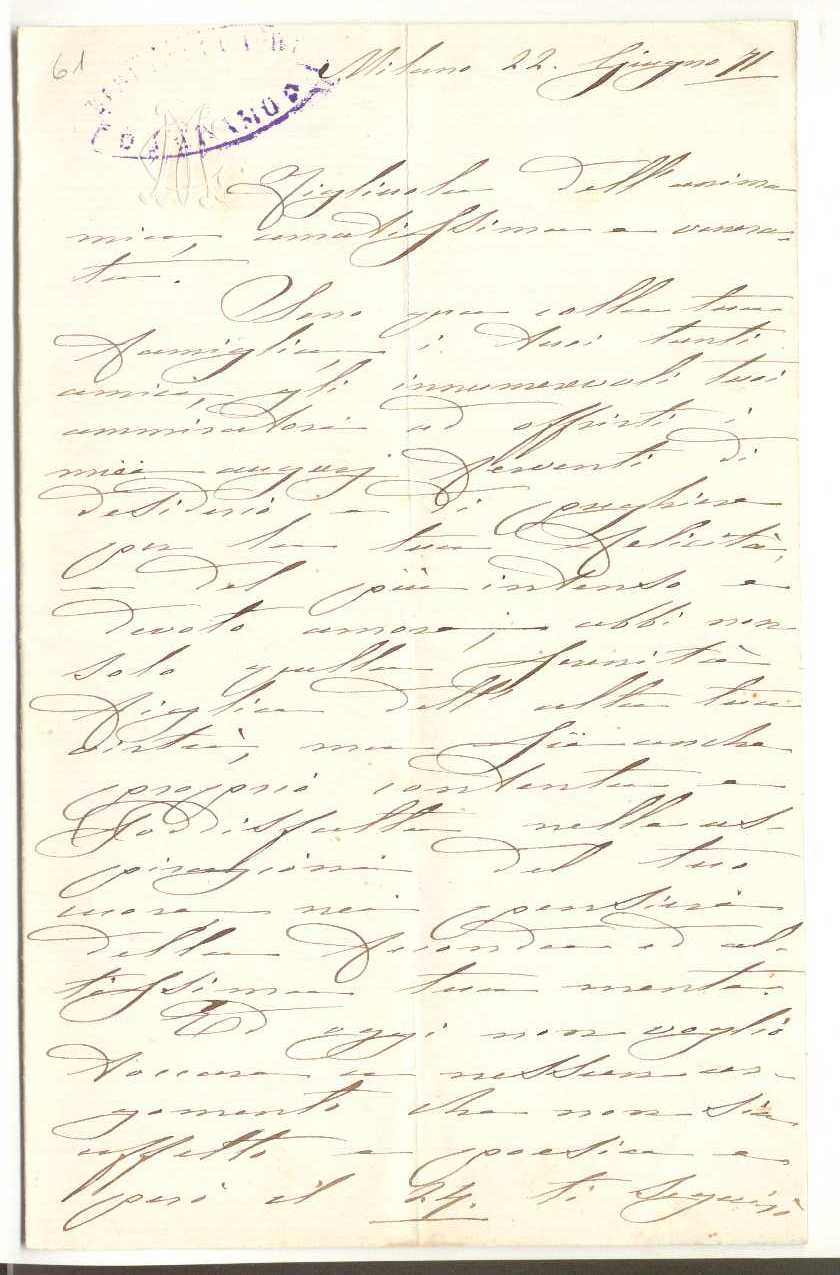 61
Milano 22. Giugno 71
Figliuola dell'anima
mia, amatissima e venera-
ta.
Sono qua colla tua
famiglia, i tuoi tanti
amici, gli innumerevoli tuoi
ammiratori ad offrirti i
miei augurj ferventi di
desiderio e di preghiera
per la tua felicità,
e del più intenso e
devoto amore; abbi non
solo quella serenità
figlia dell'alta tua
virtù, ma sii anche
proprio contenta e
soddisfatta nelle as-
pirazioni del tuo
cuore nei pensieri
della feconda ed al-
tissima tua mente.
Ed oggi non voglio
toccare a nessun ar-
gomento che non sia
affetto e poesia e
però il 24. ti seguirò